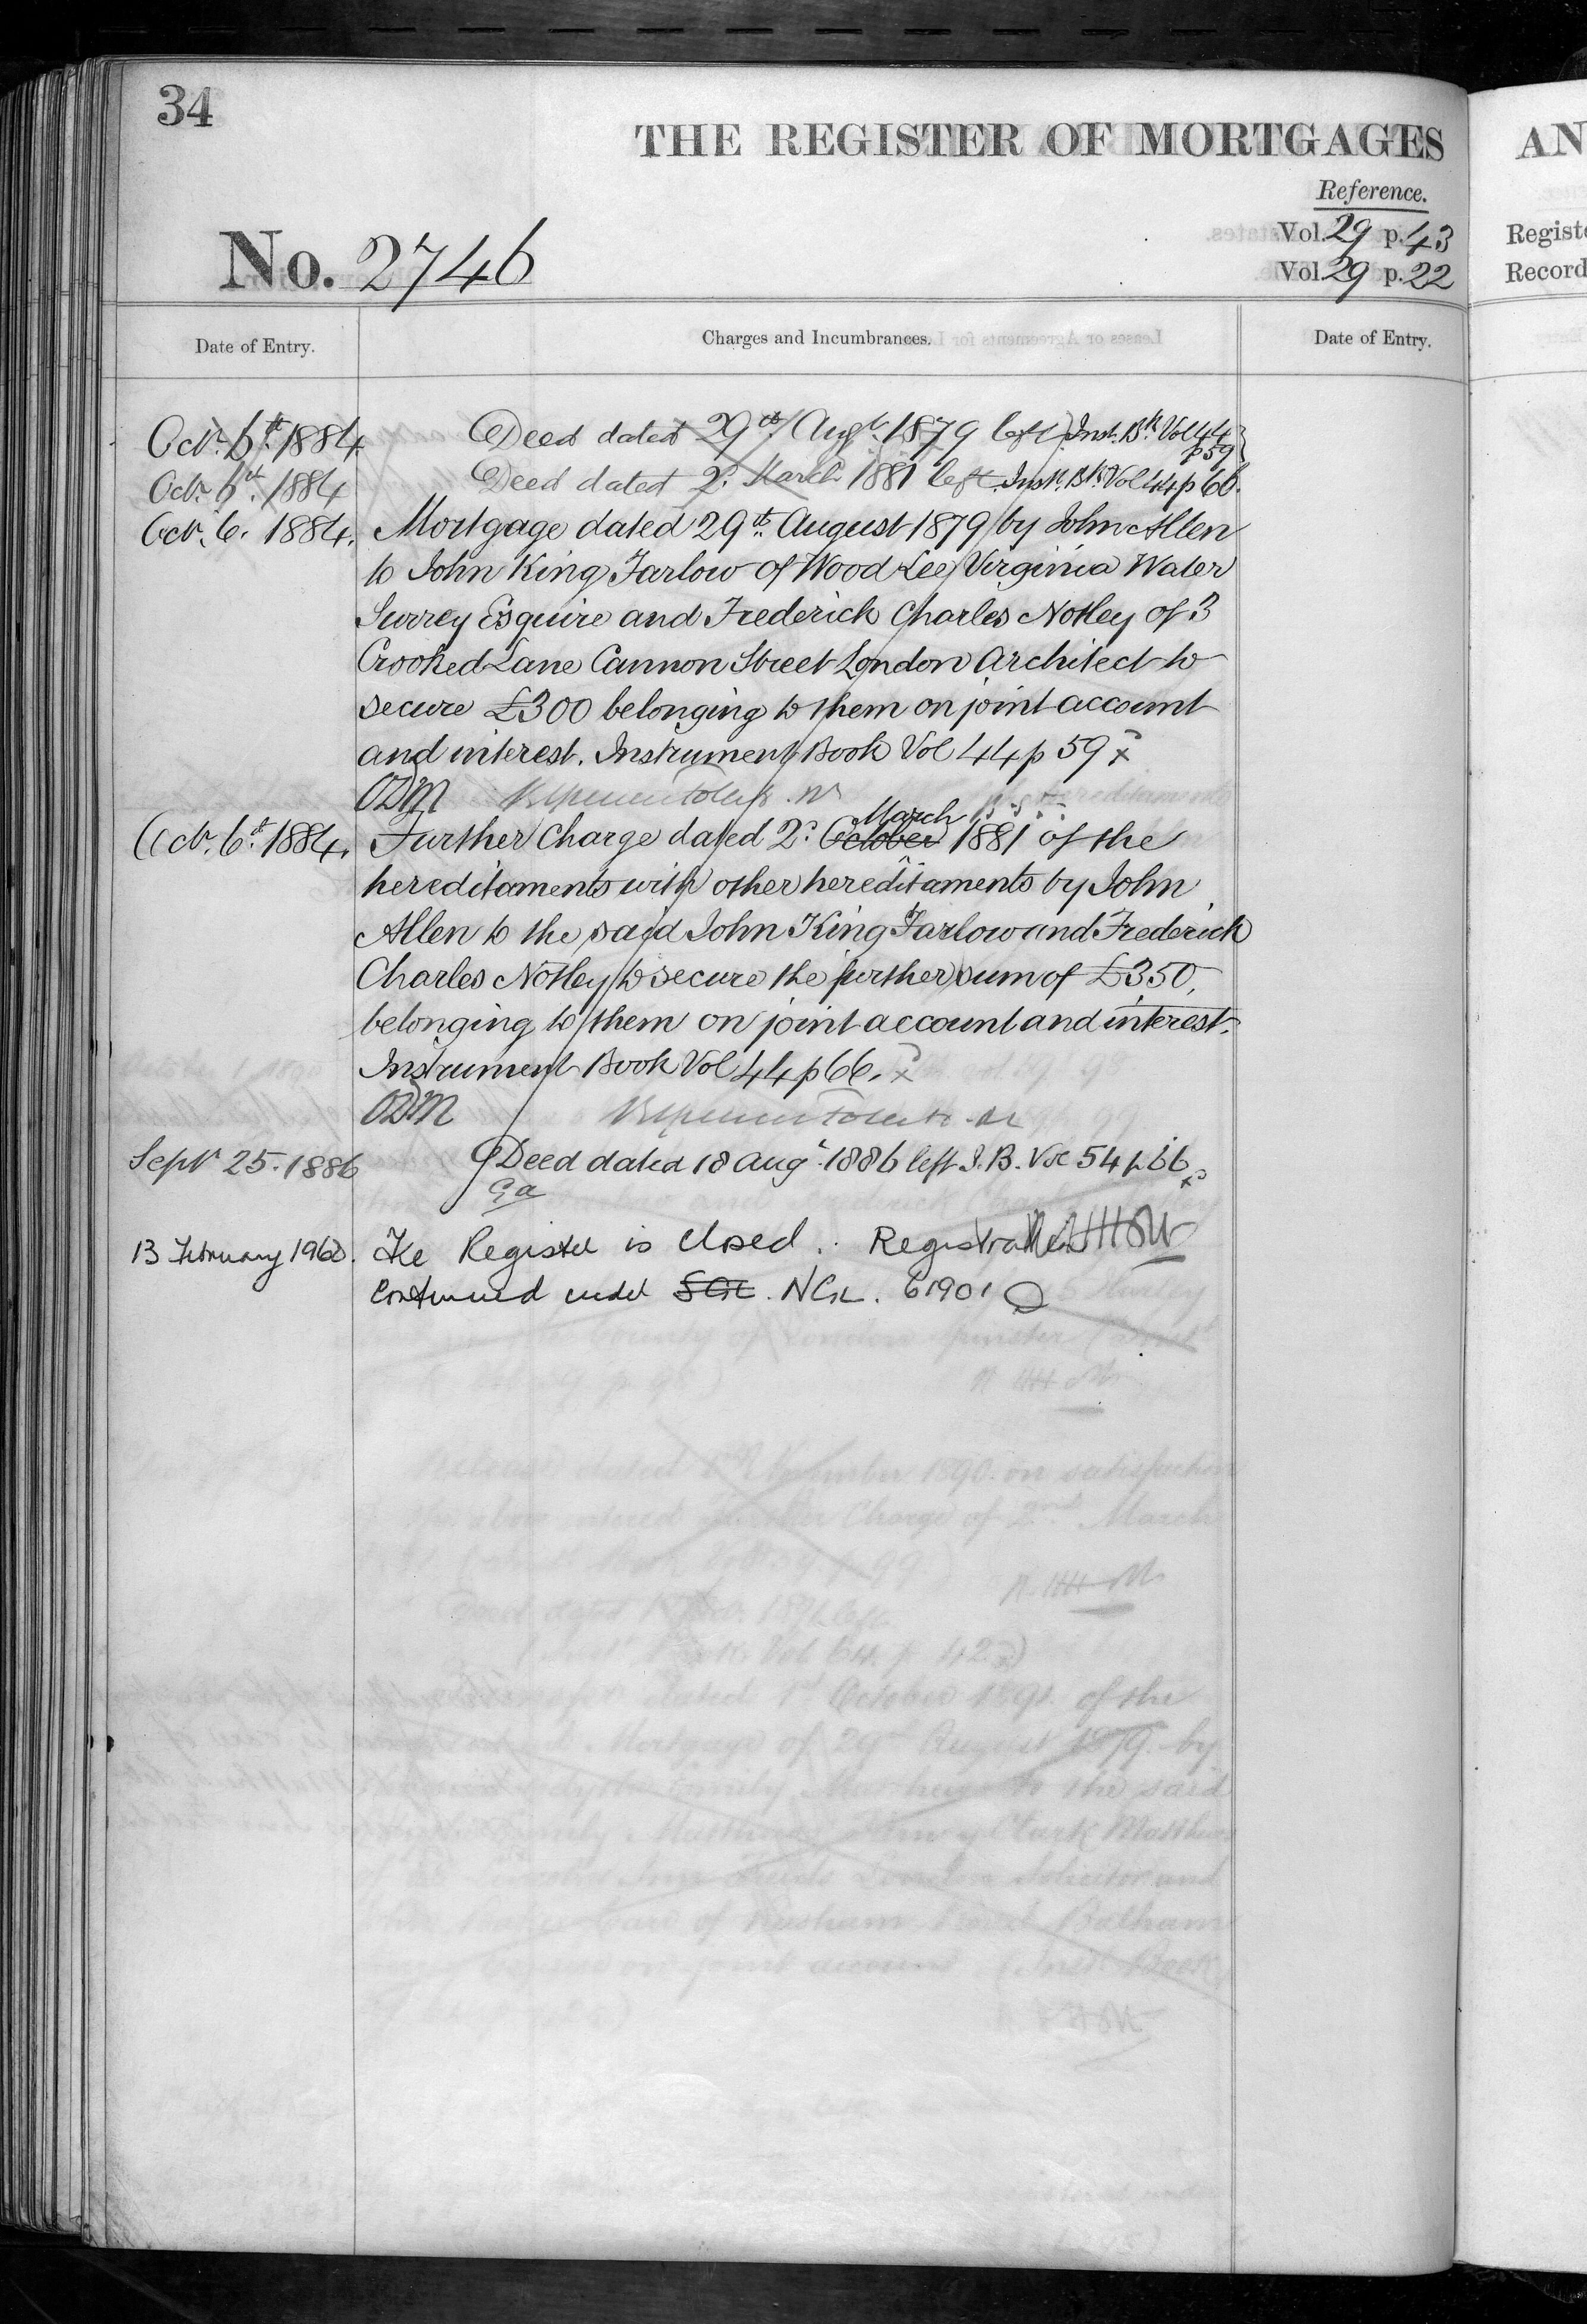 34
THE REGISTER OF MORTGAGES
AN
Reference.
Vol. 29 p. 43
Vol. 29 p. 22
Regist
Record
No. 2746
Date of Entry.
Charges and Incumbrances.
Date of Entry.
Octr. 6th. 1884. Deed dated 29th. Augt. 1879 left Inst. Bk. Vol 44 p 59
Octr. 6th. 1884 Deed dated 2d. March 1881 left Inst. Bk. Vol 44 p 66.
Octr. 6. 1884. Mortgage dated 29th. August 1879 by John Allen
to John King Farlow of Wood Lee Virginia Water
Surrey Esquire and Frederick Charles Notley of 3
Crooked Lane Cannon Street London Architect to
secure £300 belonging to them on joint account
and interest. Instrument Book Vol 44 p 59
ODM
March
Octr. 6th. 1884. Further Charge dated 2d. October 1881 of the
hereditaments with other hereditaments by John
Allen to the said John King Farlow and Frederick
Charles Notley to secure the further sum of £350,
belonging to them on joint account and interest.
Instrument Book Vol 44 p 66.
ODM
Sepr 25. 1886 Deed dated 18 Augt. 1886 left I.B. Vol 54 p 66
Ga
13 February 1960. The Register is closed. Registrar
Continued under NGR. 61901